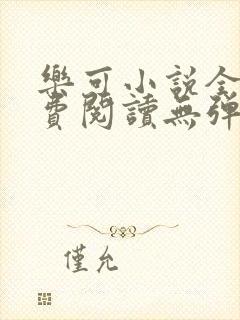 樂可小說全
費閱讀無彈
僅允